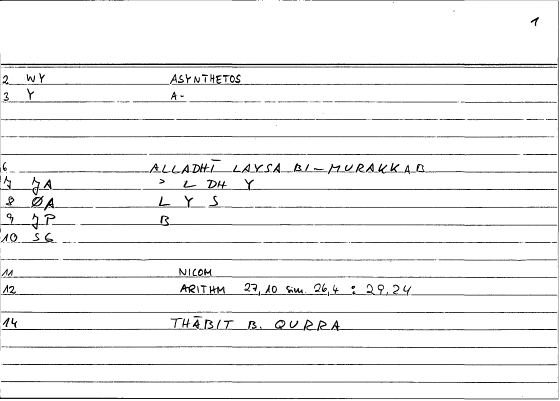 1
2 WY ASYNTHETOS
3 Y A-
6 ALLADHĪ LAYSA BI-MURAKKAB
7 JA ʾ L DH Y
8 ØA L Y S
9 JP B
10 SG
11 NICOM
12 ARITHM 27,10 sim. 26,4 : 29,24
14 THĀBIT B. QURRA